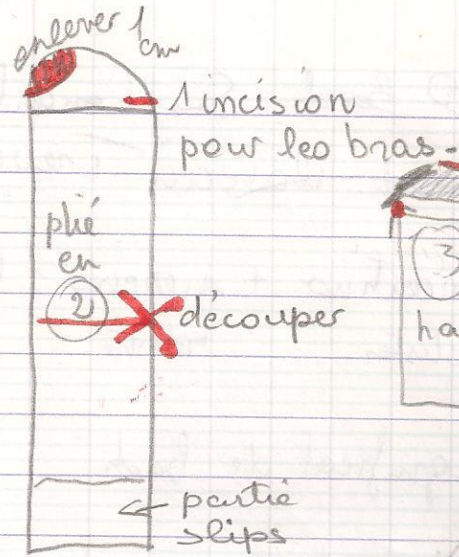 enlever 1
cm
1 incision
pour les bras -
plié
en
2
découper
3
ha
partie
slips